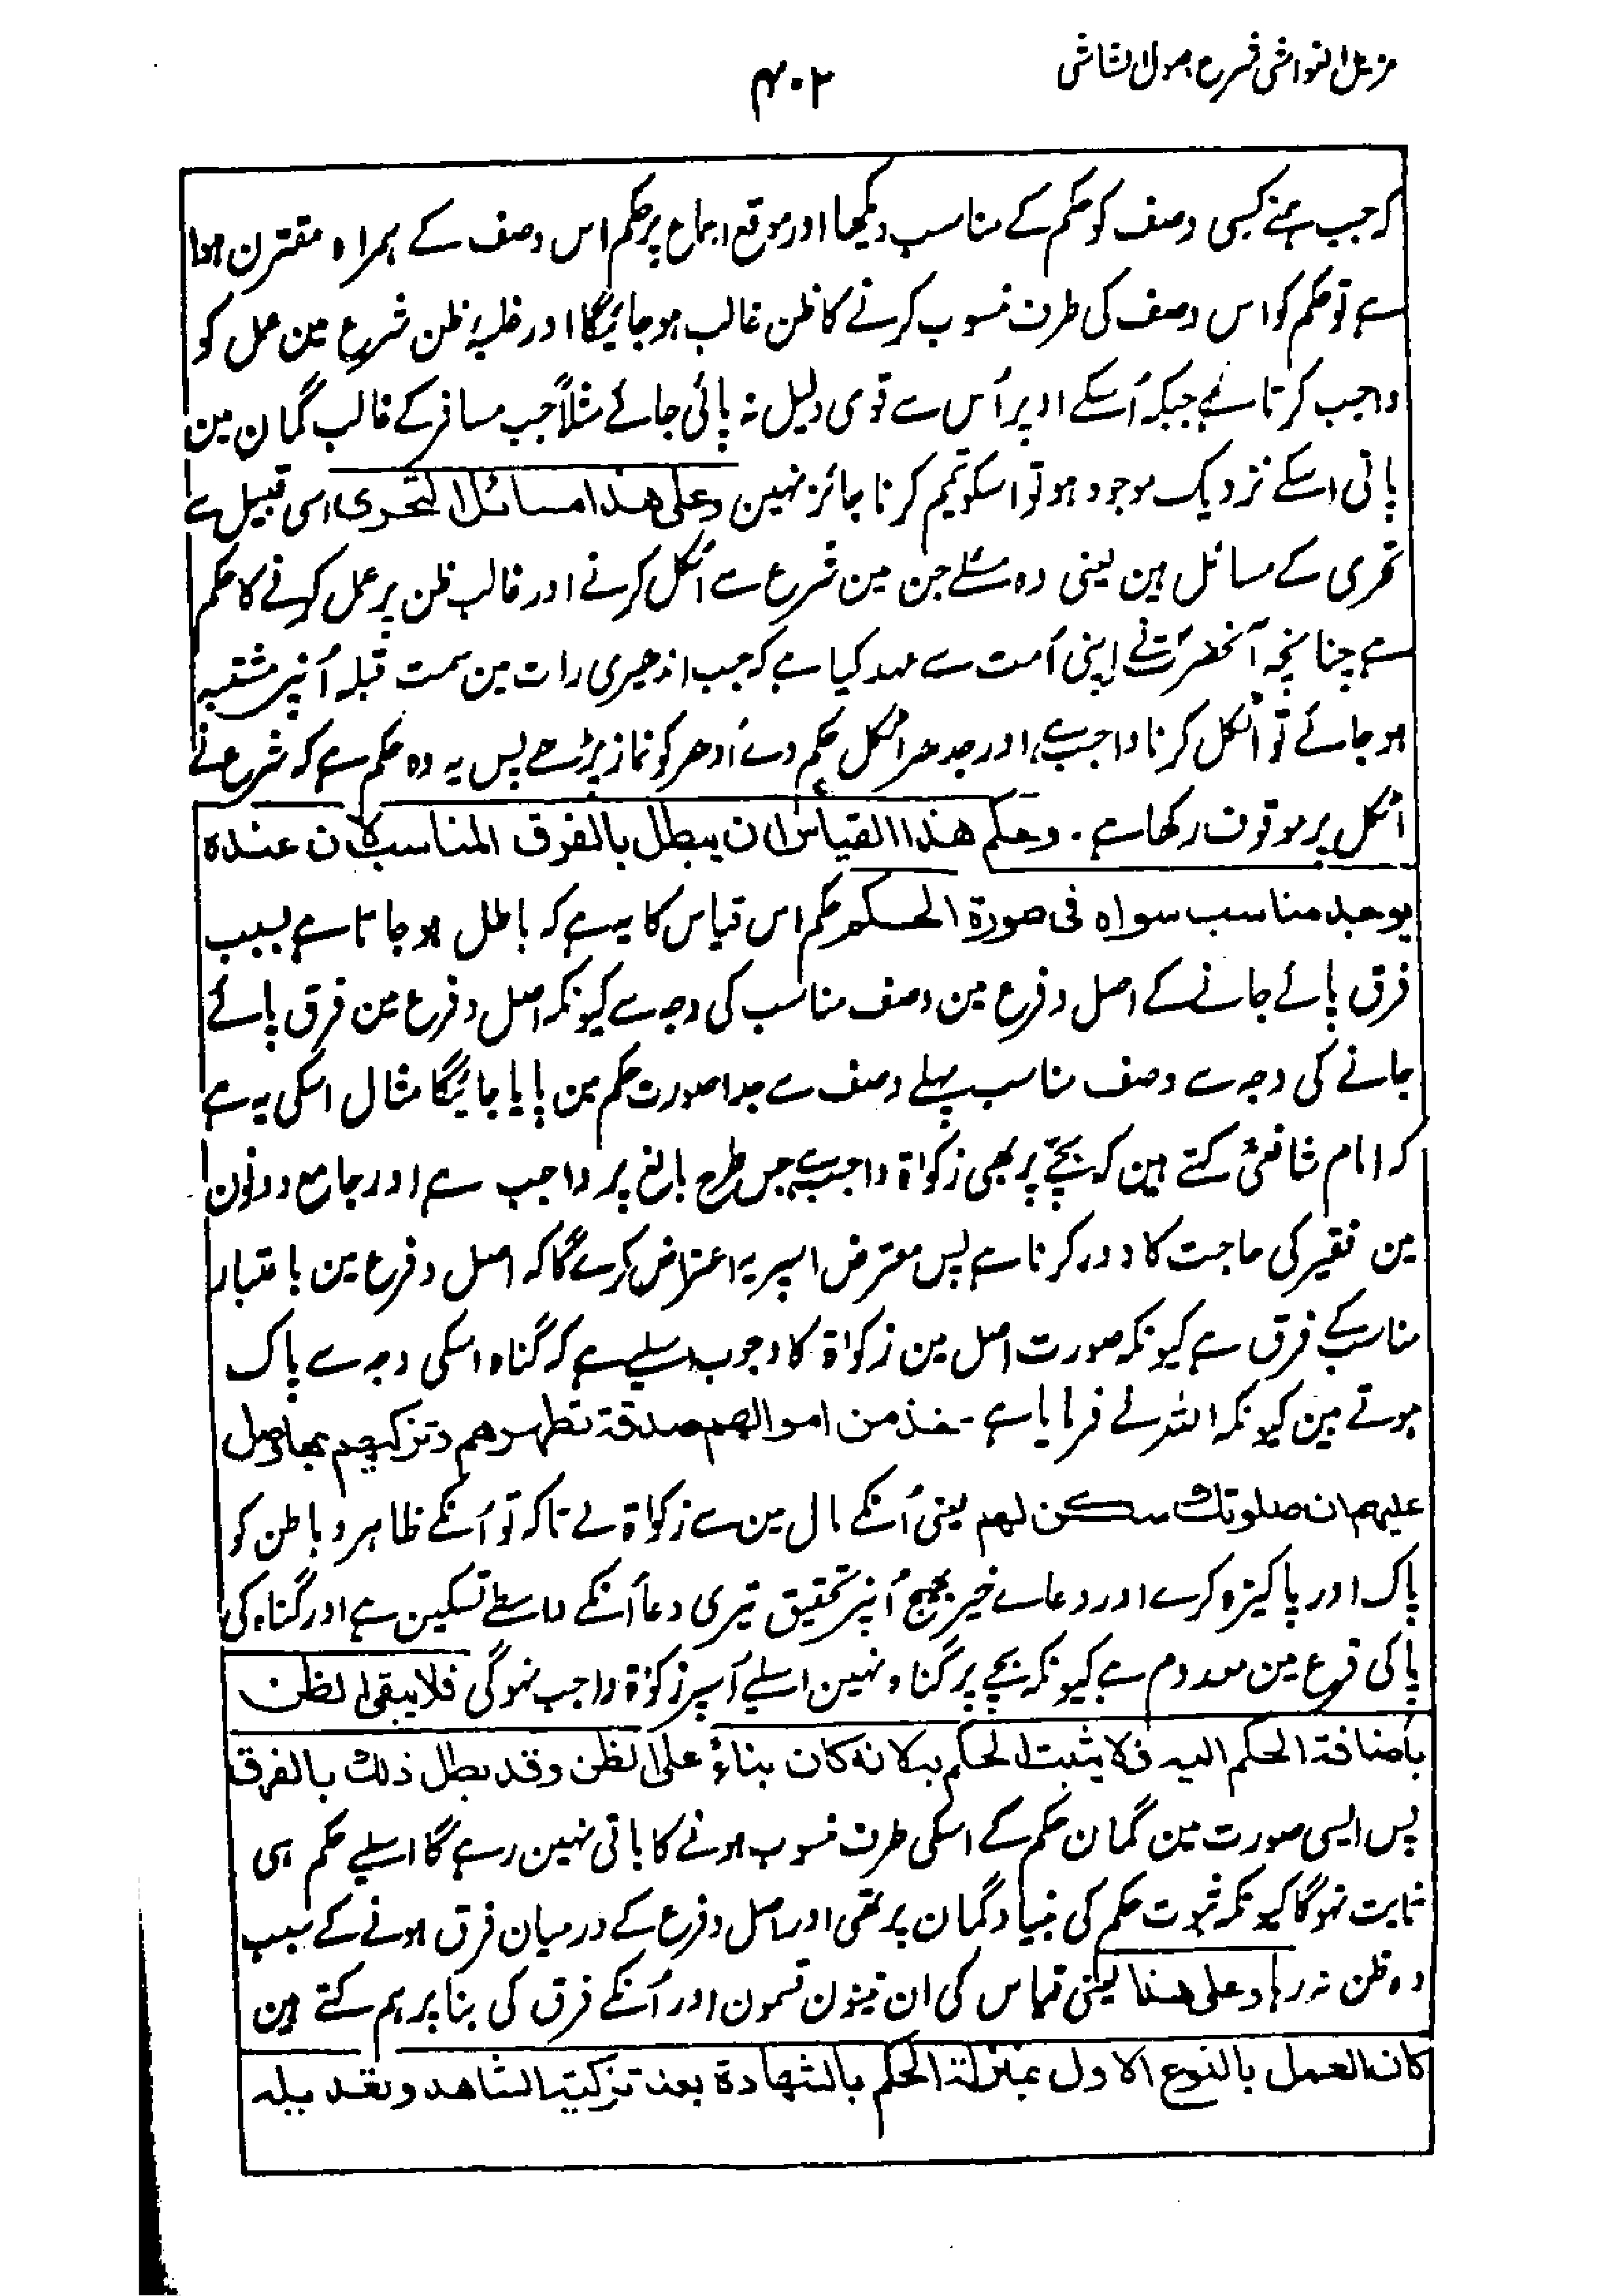 مزیل الغواشی شرح اصول الشاشی
۴۰۲
کہ جب ہمنے کسی وصف کو حکم کے مناسب دیکھا اور موقع اجماع پر حکم اس وصف کے ہمراہ مقترن ہوا
ہے تو حکم کو اس وصف کی طرف منسوب کرنے کا ظن غالب ہو جائیگا اور غلبۂ ظن شرع مین عمل کو
واجب کرتا ہے جبکہ اُسکے اوپر اُس سے قوی دلیل نہ پائی جائے مثلاً جب مسافر کے غالب گمان مین
پانی اسکے نزدیک موجود ہو تو اسکو تیمم کرنا جائز نہین وعلی ھذا مسائل التحری اسی قبیل سے
تحری کے مسائل ہین یعنی وہ مسئلے جن مین شرع سے اٹکل کرنے اور غالب ظن پر عمل کرنے کا حکم
ہے چنانچہ آنحضرتؐ نے اپنی اُمت سے عہد کیا ہے کہ جب اندھیری رات مین سمت قبلہ اُنپر مشتبہ
ہو جائے تو اٹکل کرنا واجب ہے، اور جدھر اٹکل حکم دے اُدھر کو نماز پڑھے پس یہ وہ حکم ہے کہ شرع نے
اٹکل پر موقوف رکھا ہے۔ وحکم ھذا القیاس ان یبطل بالفرق المناسب لان عندہ
یوجد مناسب سواہ فی صورۃ الحکم حکم اس قیاس کا یہ ہے کہ باطل ہو جاتا ہے بسبب
فرق پائے جانے کے اصل و فرع مین وصف مناسب کی وجہ سے کیونکہ اصل و فرع مین فرق پائے
جانے کی وجہ سے وصف مناسب پہلے وصف سے جدا صورت حکم مین پایا جائیگا مثال اسکی یہ ہے
کہ امام شافعیؒ کہتے ہین کہ بچے پر بھی زکوٰۃ واجب ہے جس طرح بالغ پر واجب ہے اور جامع دونون
مین فقیر کی حاجت کا دور کرنا ہے پس معترض اسپر یہ اعتراض کرے گا کہ اصل و فرع مین باعتبار
مناسب کے فرق ہے کیونکہ صورت اصل مین زکوٰۃ کا وجوب اسلیے ہے کہ گناہ اسکی وجہ سے پاک
ہوتے ہین کیونکہ اللہ نے فرمایا ہے۔ خذ من اموالھم صدقۃ تطھرھم وتزکیھم بھا وصل
علیھم ان صلوتک سکن لھم یعنی اُنکے مال مین سے زکوٰۃ لے تاکہ تو اُنکے ظاہر و باطن کو
پاک اور پاکیزہ کرے اور دعاے خیر بھیج اُنپر تحقیق تیری دعا اُنکے واسطے تسکین ہے اور گناہ کی
پاکی فرع مین معدوم ہے کیونکہ بچے پر گناہ نہین اسلیے اُسپر زکوٰۃ واجب نہوگی فلا یبقی الظن
باضافۃ الحکم الیہ فلا یثبت الحکم بہ لانہ کان بناءً علی الظن وقد بطل ذلک بالفرق
پس ایسی صورت مین گمان حکم کے اسکی طرف منسوب ہونے کا باقی نہین رہے گا اسلیے حکم ہی
ثابت نہوگا کیونکہ ثبوت حکم کی بنیاد گمان پر تھی اور اصل و فرع کے درمیان فرق ہونے کے سبب
وہ ظن نہ رہا وعلی ھذا یعنی قیاس کی ان تینون قسمون اور اُنکے فرق کی بنا پر ہم کہتے ہین
کان العمل بالنوع الاول بمنزلۃ الحکم بالشھادۃ بعد تزکیۃ الشاھد وتعدیلہ